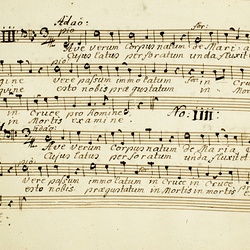 Adaõ:
pio for:
Ave verum Corpus natum de Mari: a
Cujus latus perforatum unda fluxit
gine Vere passum immolatum in Cruce
guine esto nobis prægustatum in Mortis
in Cruce pro homine. No: IIII:
in Mortis examine.
pio
Ave verum Corpus natum de Maria,
Cujus latus perforatum unda fluxit et
Vere passum immolatum in Cruce in Cruce
esto nobis prægustatum in Mortis in mortis